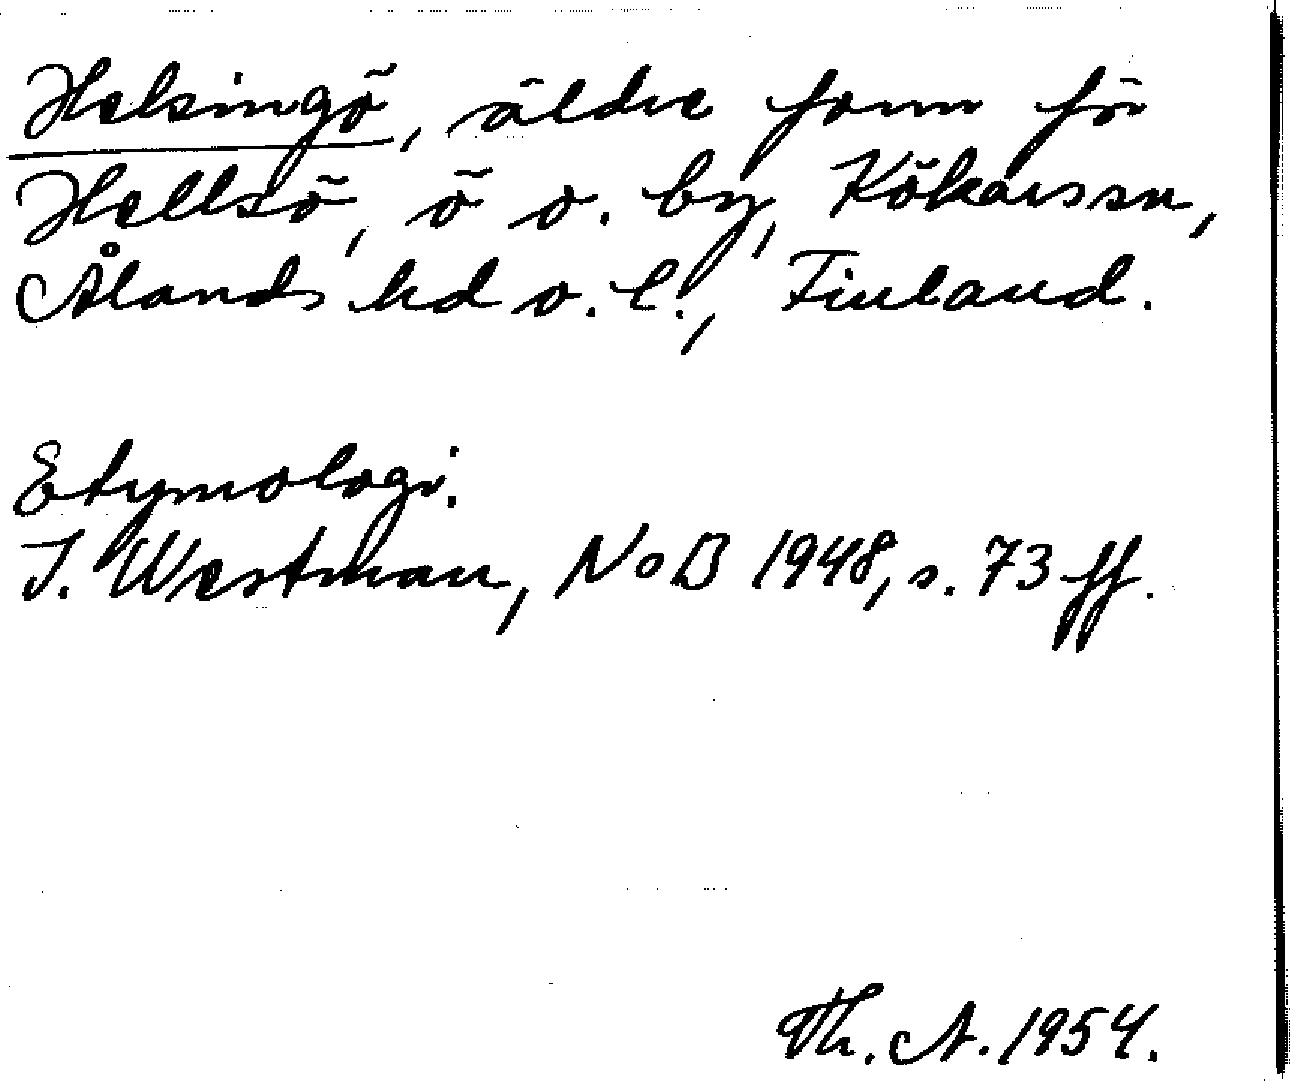 Helsingö, äldre form för
Hellsö, ö o. by, Kökarssn,
Ålands hd o. l., Finland.
Etymologi.
I. Westman, NoB 1948, s. 73 ff.
Th. A. 1954.